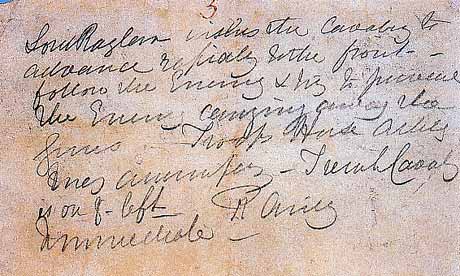 3
Lord Raglan wishes the Cavalry to
advance rapidly to the front –
follow the Enemy & try to prevent
the Enemy carrying away the
guns – Troop Horse Artillery
may accompany – French Cavalry
is on yr left R Airey
Immediate –